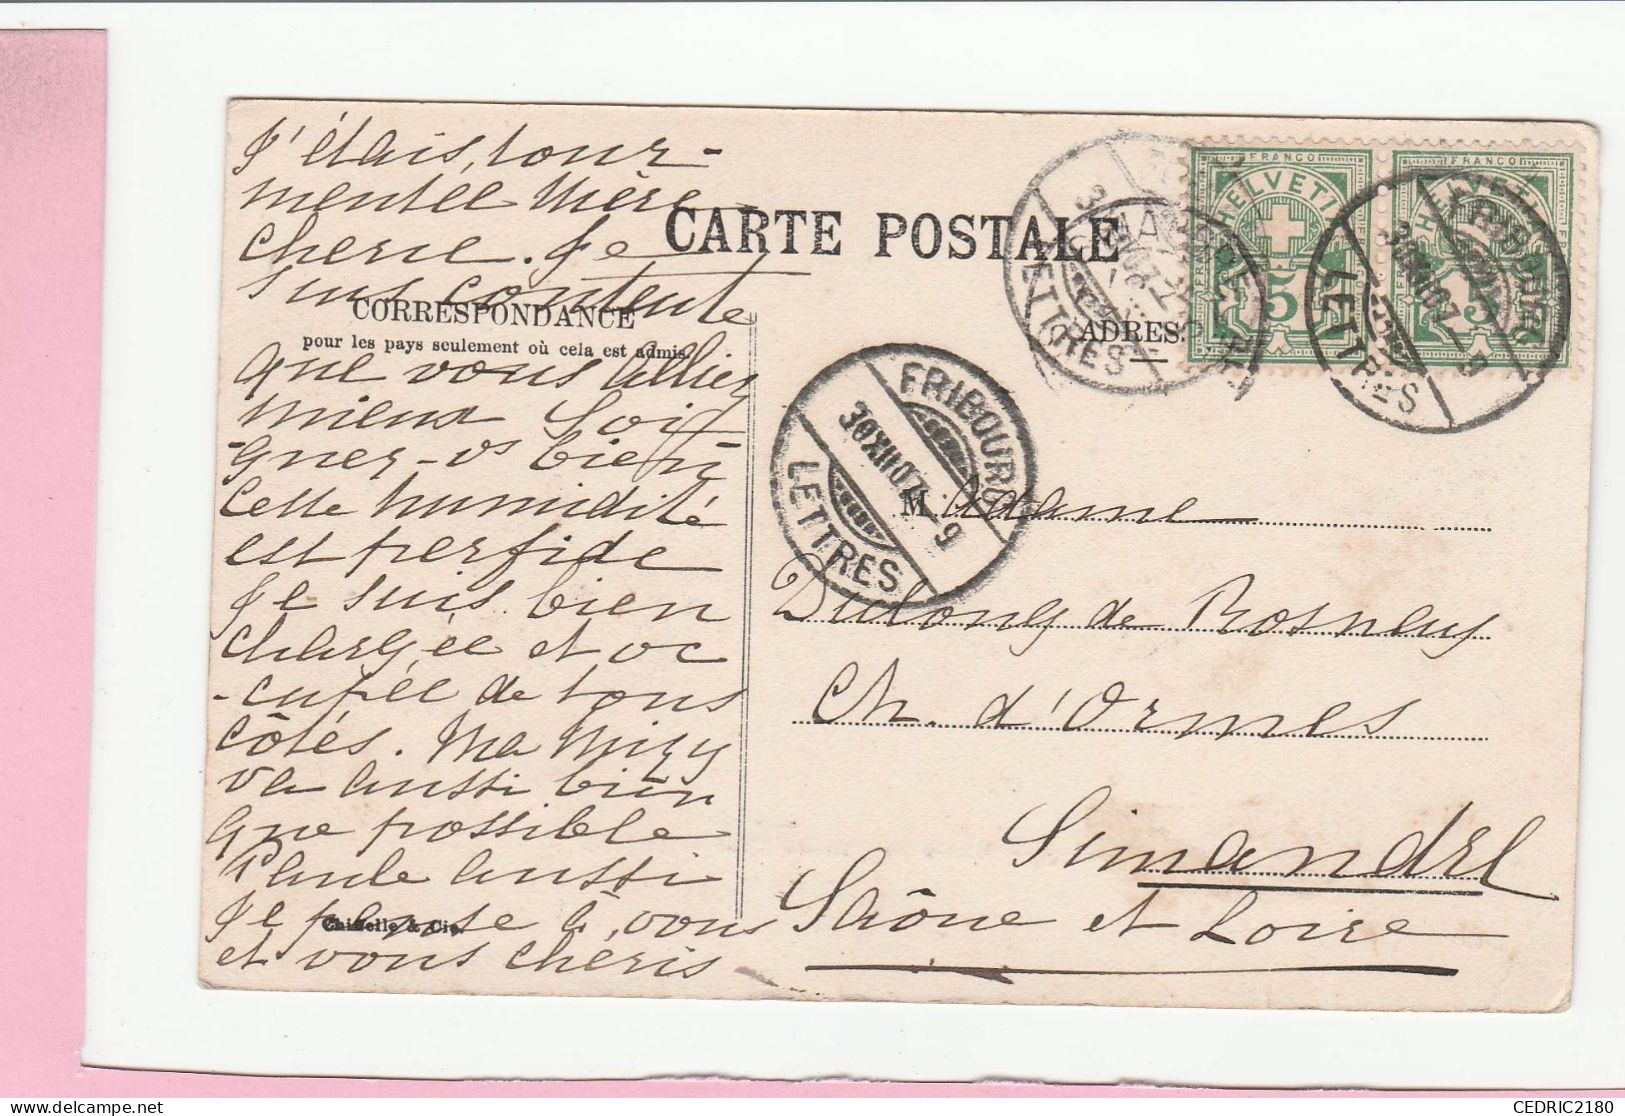 J'étais, tour-
mentée Mère
cherie. Je
suis contente
que vous alliez
mieux Soi-
-gnez-vs bien
Cette humidité
est perfide
Je suis bien
chargée et oc
-cupée de tous
côtés. Ma Mizy
va aussi bien
que possible
Paule aussi
Je pense à vous
et vous chéris
CARTE POSTALE
CORRESPONDANCE
pour les pays seulement où cela est admis.
ADRES
FRANCO
HELVETIA
5
FRANCO
HELVETIA
5
FRIBOURG
30XII07-9
LETTRES
FRIBOURG
30XII07-9
LETTRES
LETTRES
Madame
Dulong de Rosnay
Ch. d'Ormes
Simandre
Saône et Loire
& Cie
CEDRIC2180